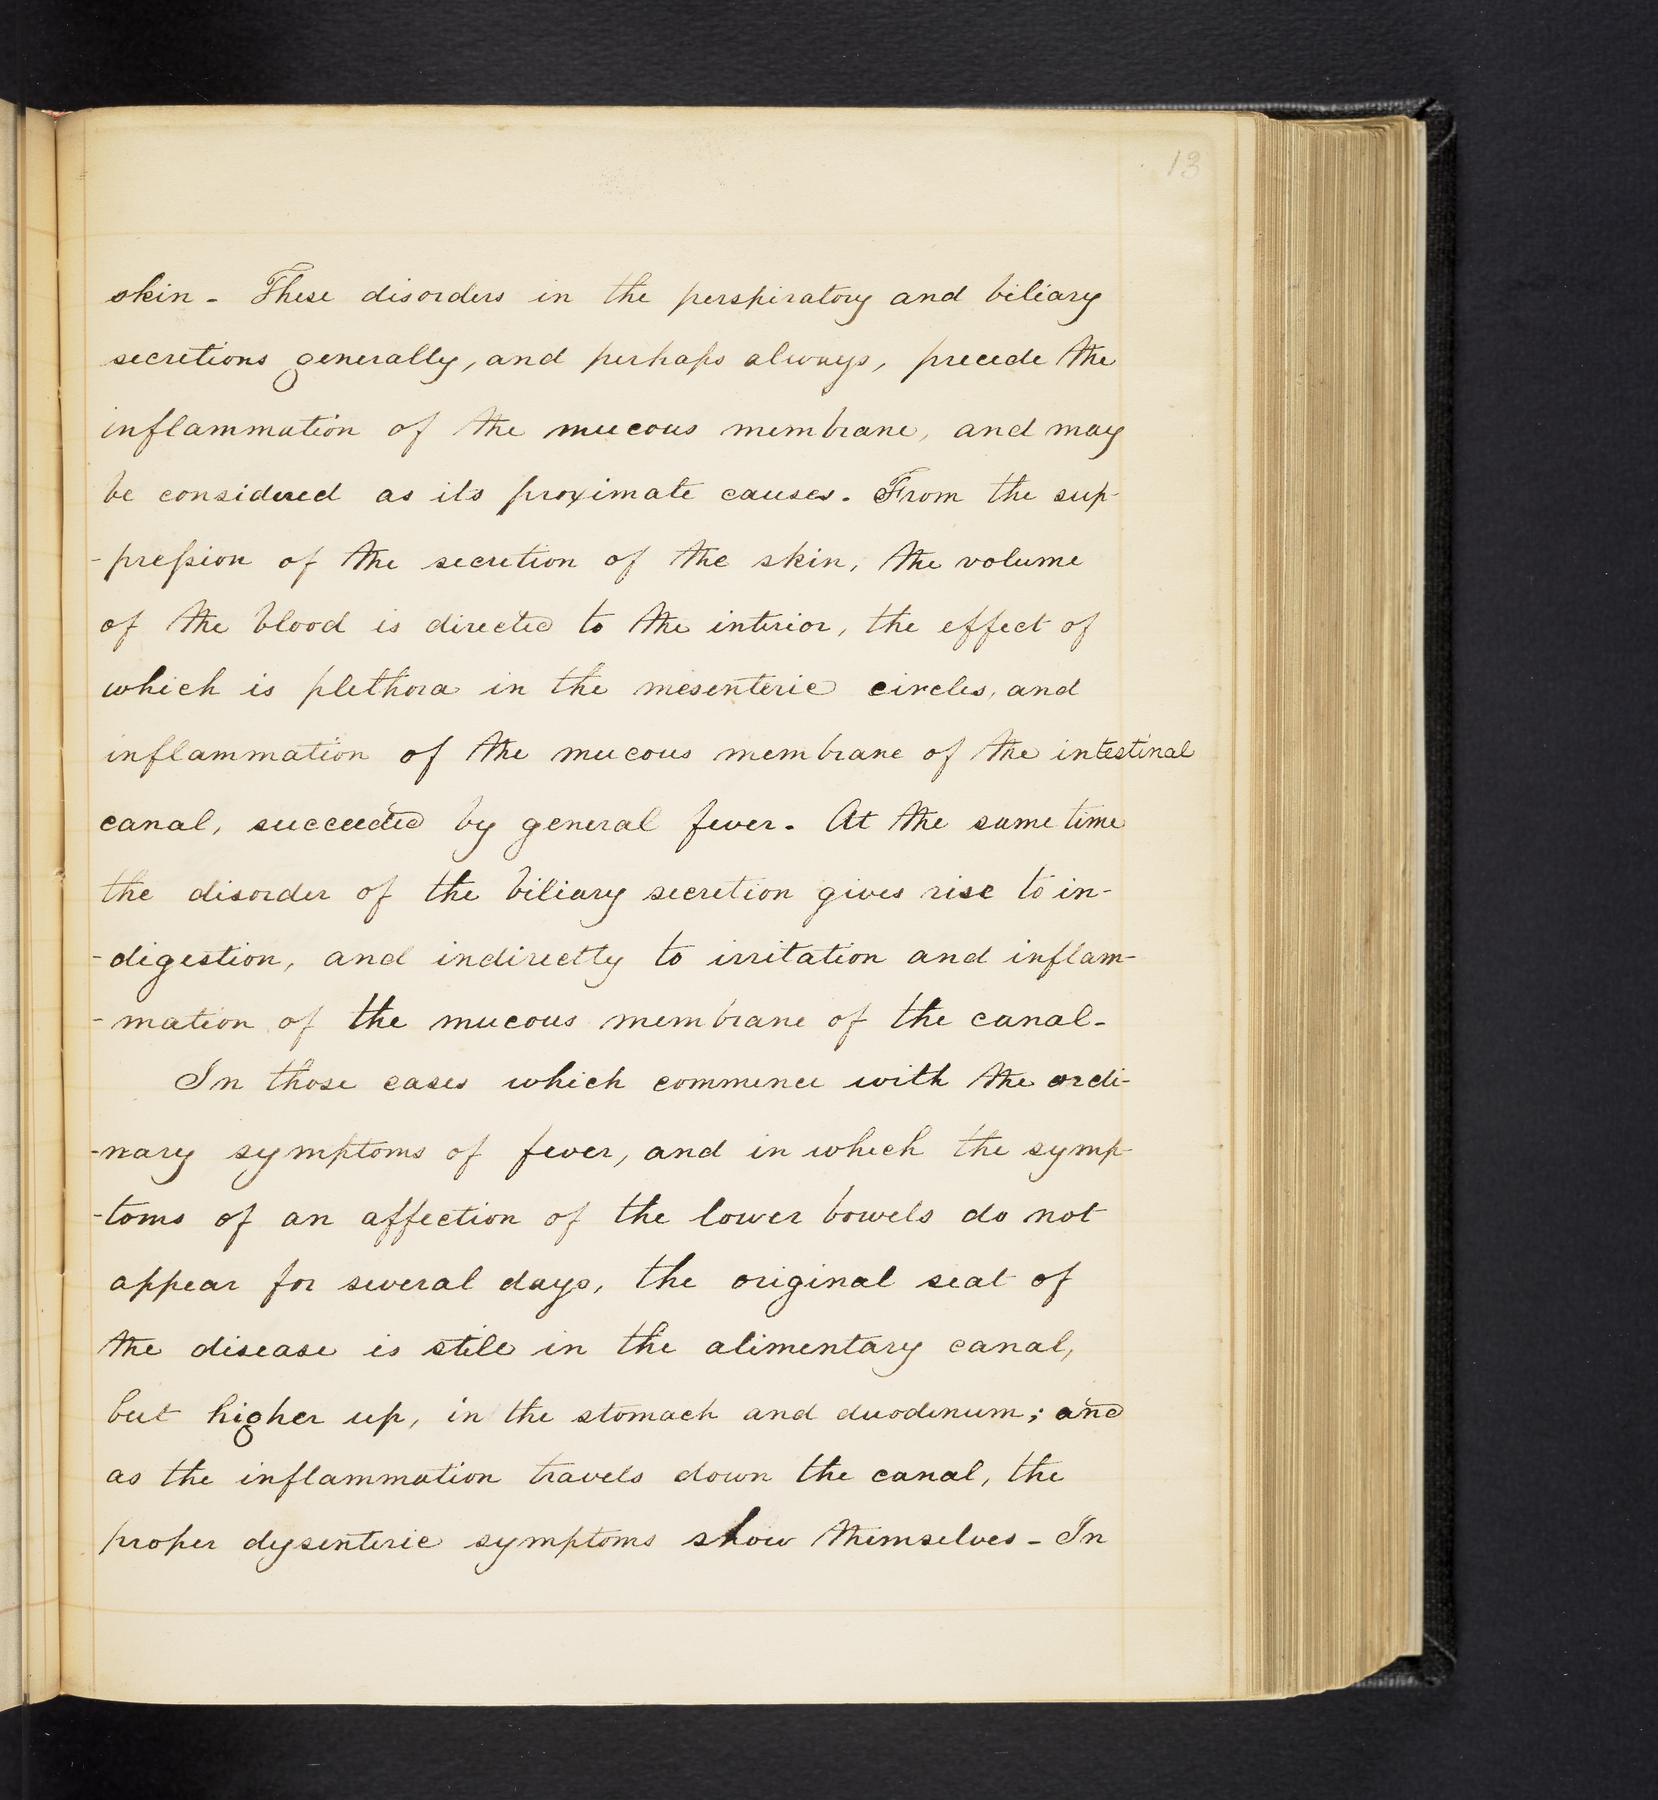 13
skin - These disorders in the perspiratory and biliary
secretions generally, and perhaps always, precede the
inflammation of the mucous membrane, and may
be considered as its proximate causes. From the sup-
-preſsion of the secretion of the skin, the volume
of the blood is directed to the interior, the effect of
which is plethora in the mesenteric circles, and
inflammation of the mucous membrane of the intestinal
canal, succeeded by general fever. At the same time
the disorder of the biliary secretion gives rise to in-
-digestion, and indirectly to irritation and inflam-
-mation of the mucous membrane of the canal-
In those cases which commence with the ordi-
-nary symptoms of fever, and in which the symp-
-toms of an affection of the lower bowels do not
appear for several days, the original seat of
the disease is still in the alimentary canal,
but higher up, in the stomach and duodenum; and
as the inflammation travels down the canal, the
proper dysenteric symptoms show themselves - In